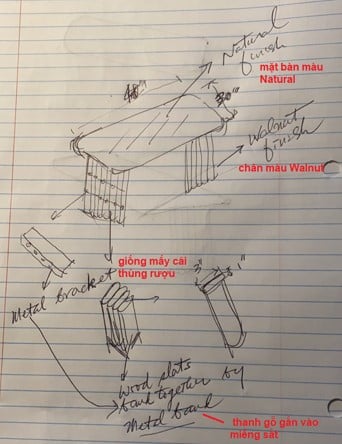 Natural
finish
mặt bàn màu
Natural
30"
Walnut
finish
chân màu Walnut
giống mấy cái
thùng rượu
Metal bracket
3"
1"
Wood slats
together by
Metal band
thanh gỗ gắn vào
miếng sắt